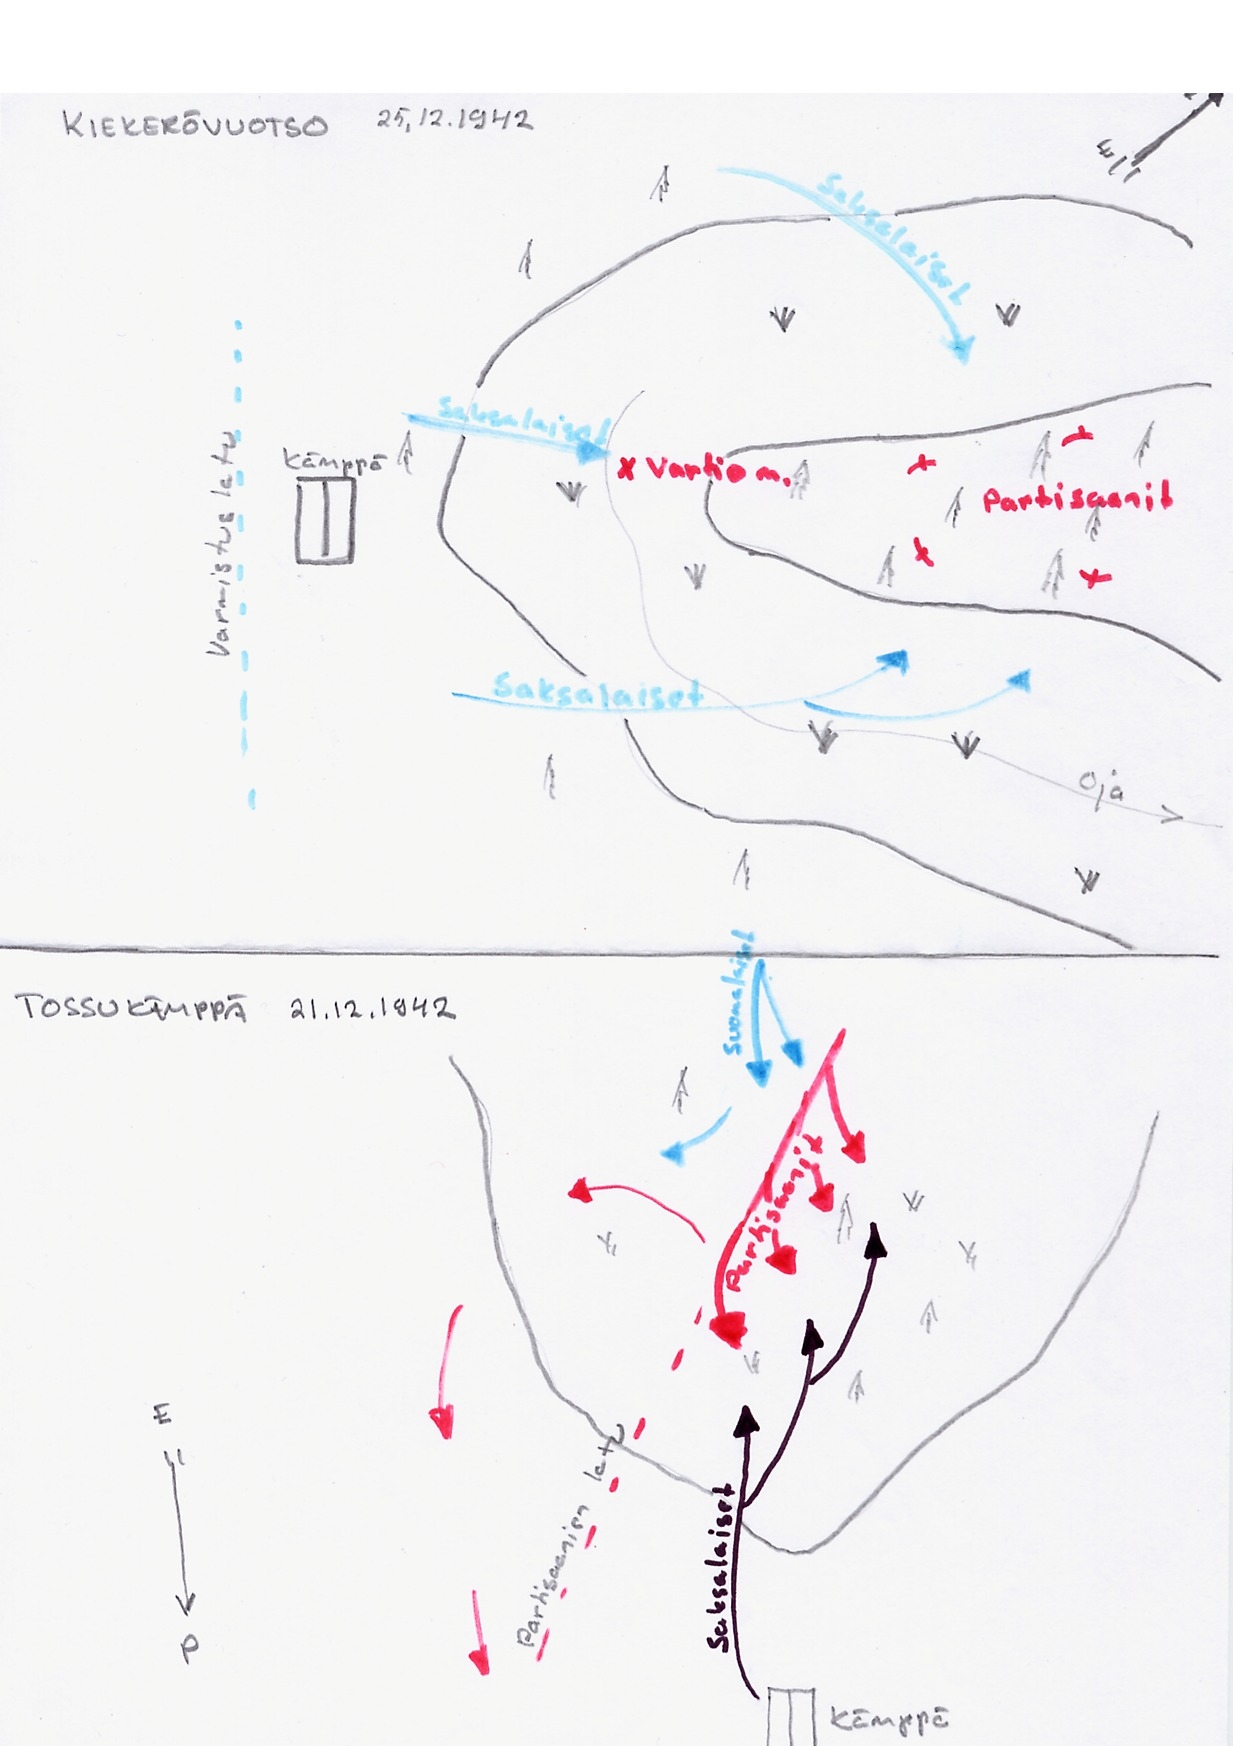 KIEKERÖVUOTSO 25.12.1942
E
Saksalaiset
Saksalaiset
Kämppä
x Vartiom.
Partisaanit
Varmistus latu
Saksalaiset
Oja
TOSSUKÄMPPÄ 21.12.1942
Suomalaiset
Partisaanit
E
P
Partisaanien latu
Saksalaiset
KÄMPPÄ